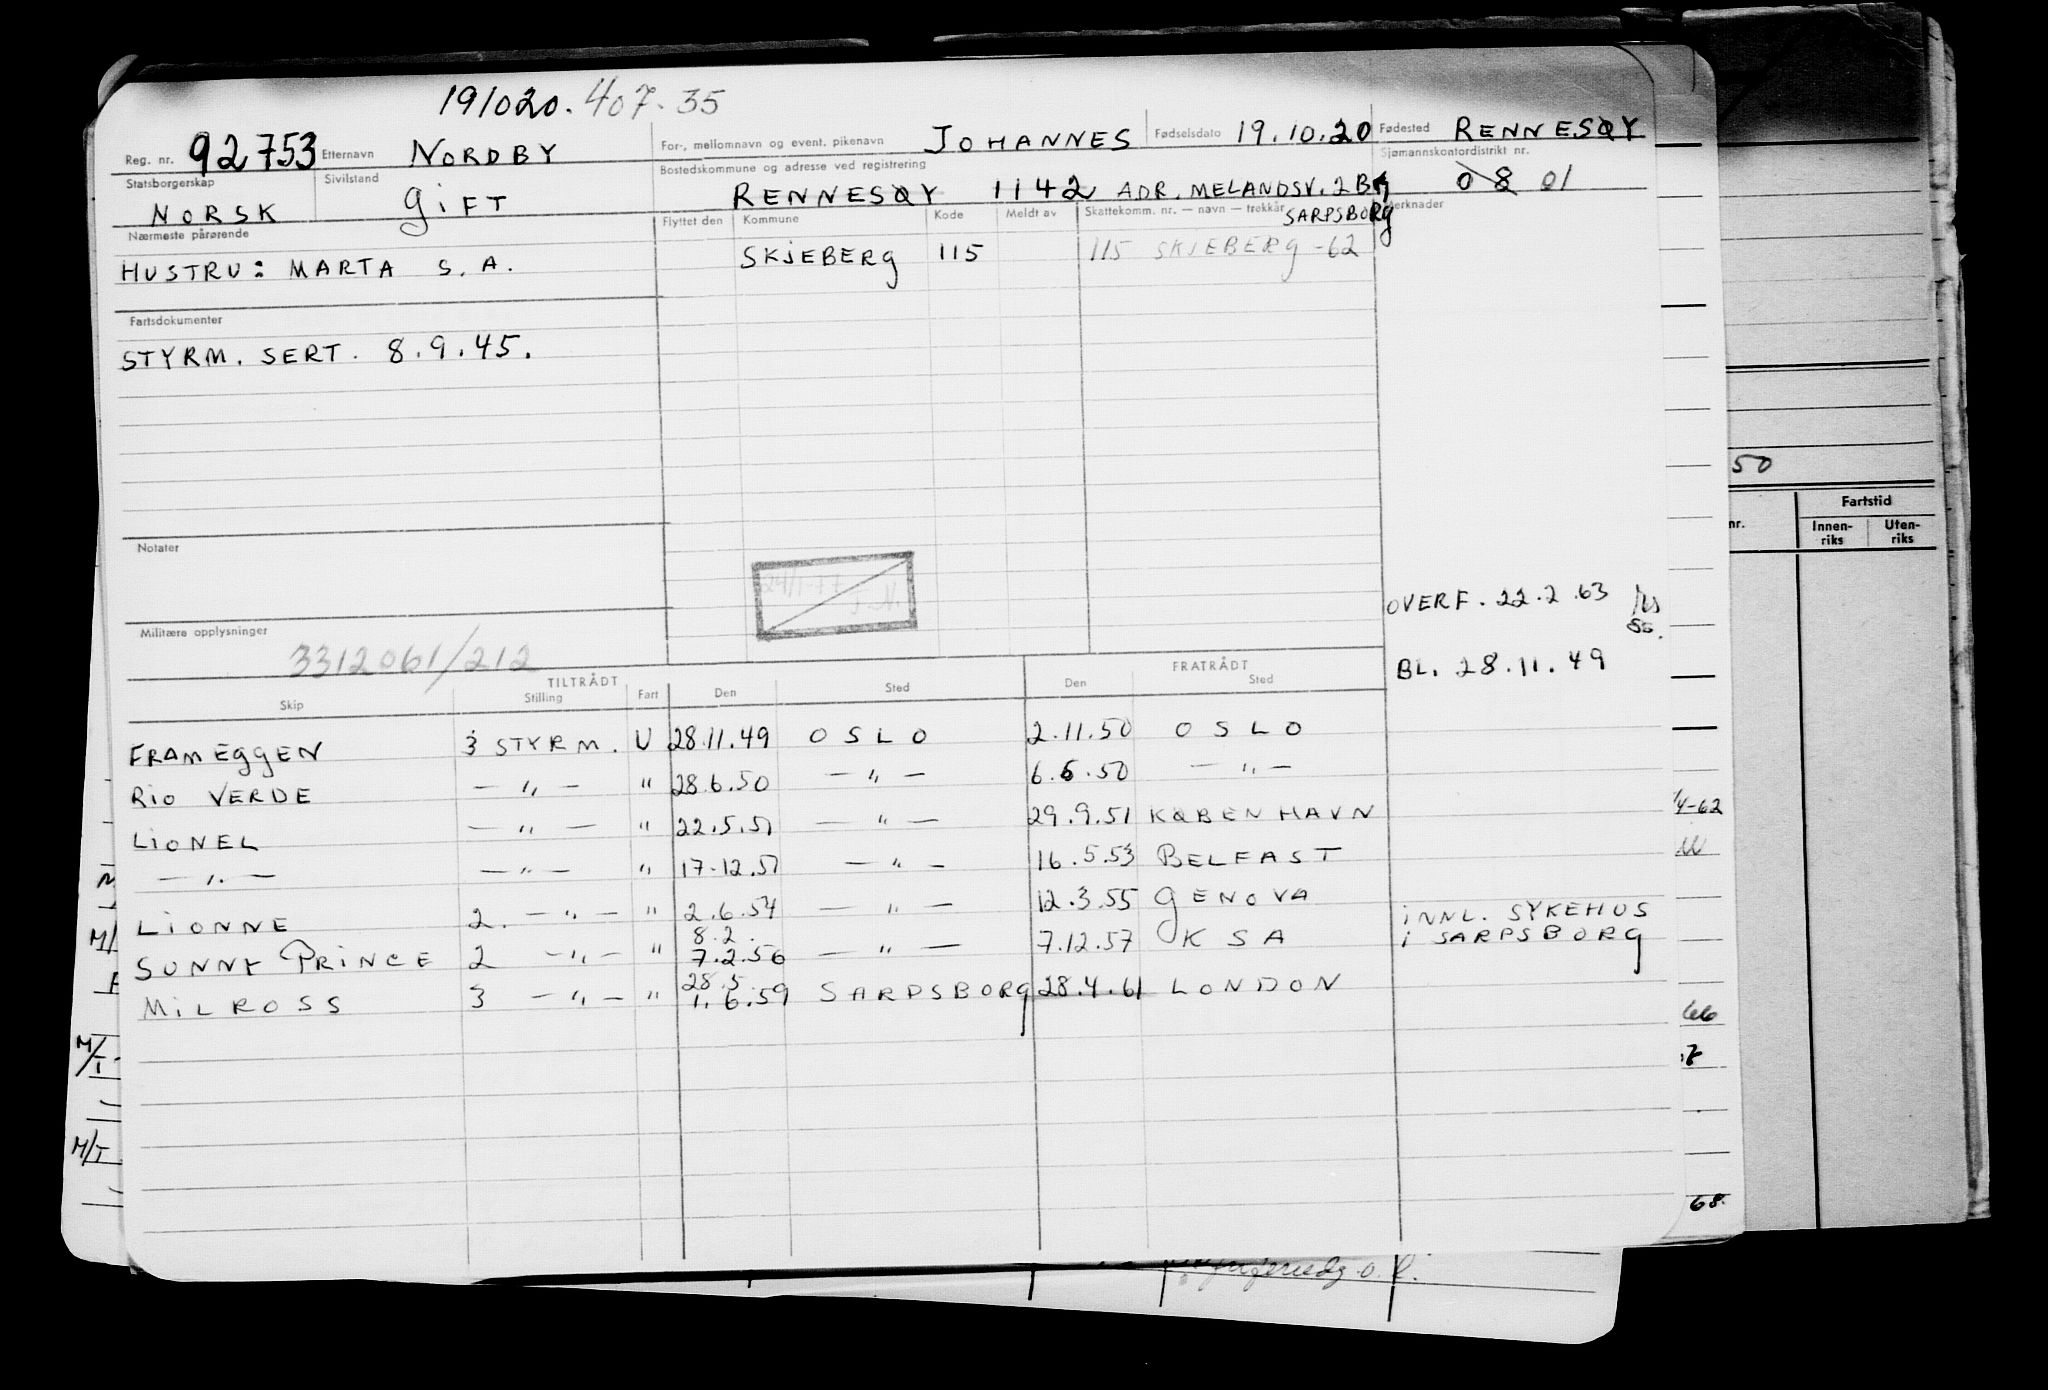 191020.407.35
Reg. nr. 92753 Etternavn NORDBY For-, mellomnavn og event. pikenavn JOHANNES Fødselsdato 19.10.20 Fødested RENNESØY
Statsborgerskap NORSK Sivilstand GIFT Bostedskommune og adresse ved registrering RENNESØY 1142 ADR. MELANDSV. 2B SARPSBORG Sjømannskontordistrikt nr. 08 01
Nærmeste pårørende Flyttet den Kommune Kode Meldt av Skattekomm. nr. — navn — trekkår Merknader
HUSTRU: MARTA S. A. SKJEBERG 115 115 SKJEBERG -62
Fartsdokumenter
STYRM. SERT. 8.9.45.
50
nr. Fartstid
Innen-riks Uten-riks
Notater
24/1-77 T.N.
OVERF. 22.2.63
Militære opplysninger 3312061/212
BL. 28.11.49
TILTRÅDT FRATRÅDT
Skip Stilling Fart Den Sted Den Sted
FRAMEGGEN 3 STYRM. U 28.11.49 OSLO 2.11.50 OSLO
RIO VERDE — " — " 28.6.50 — " — 6.6.50 — " —
LIONEL — " — " 22.5.51 — " — 29.9.51 KØBENHAVN
— " — — " — " 17.12.51 — " — 16.5.53 BELFAST
LIONNE 2. — " — " 2.6.54 — " — 12.3.55 GENOVA
SUNNY PRINCE 2 — " — " 8.2. 7.2.56 — " — 7.12.57 KSA INNL. SYKEHUS I SARPSBORG
MILROSS 3 — " — " 28.5. 1.6.59 SARPSBORG 28.4.61 LONDON
/4-62
M/
66
M/T
M/T
68.